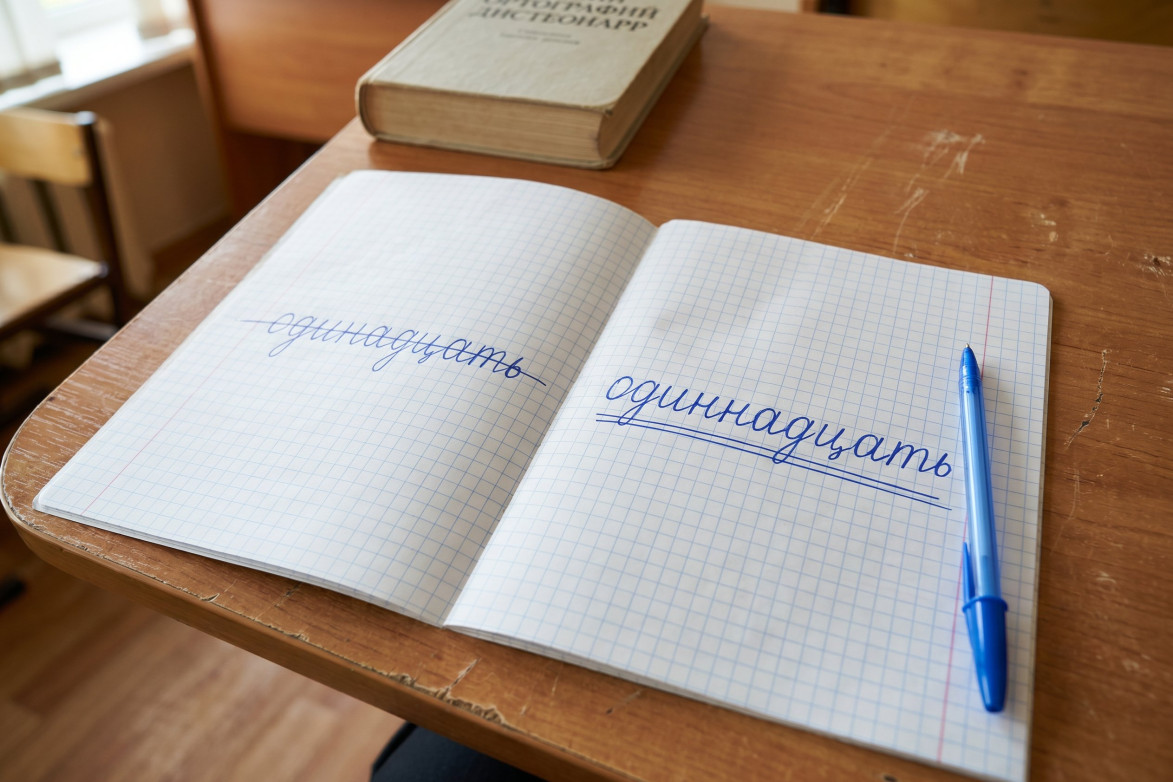 ОРТОГРАФИЙ
ДИСТЕОНАРР
одинадцать
одиннадцать